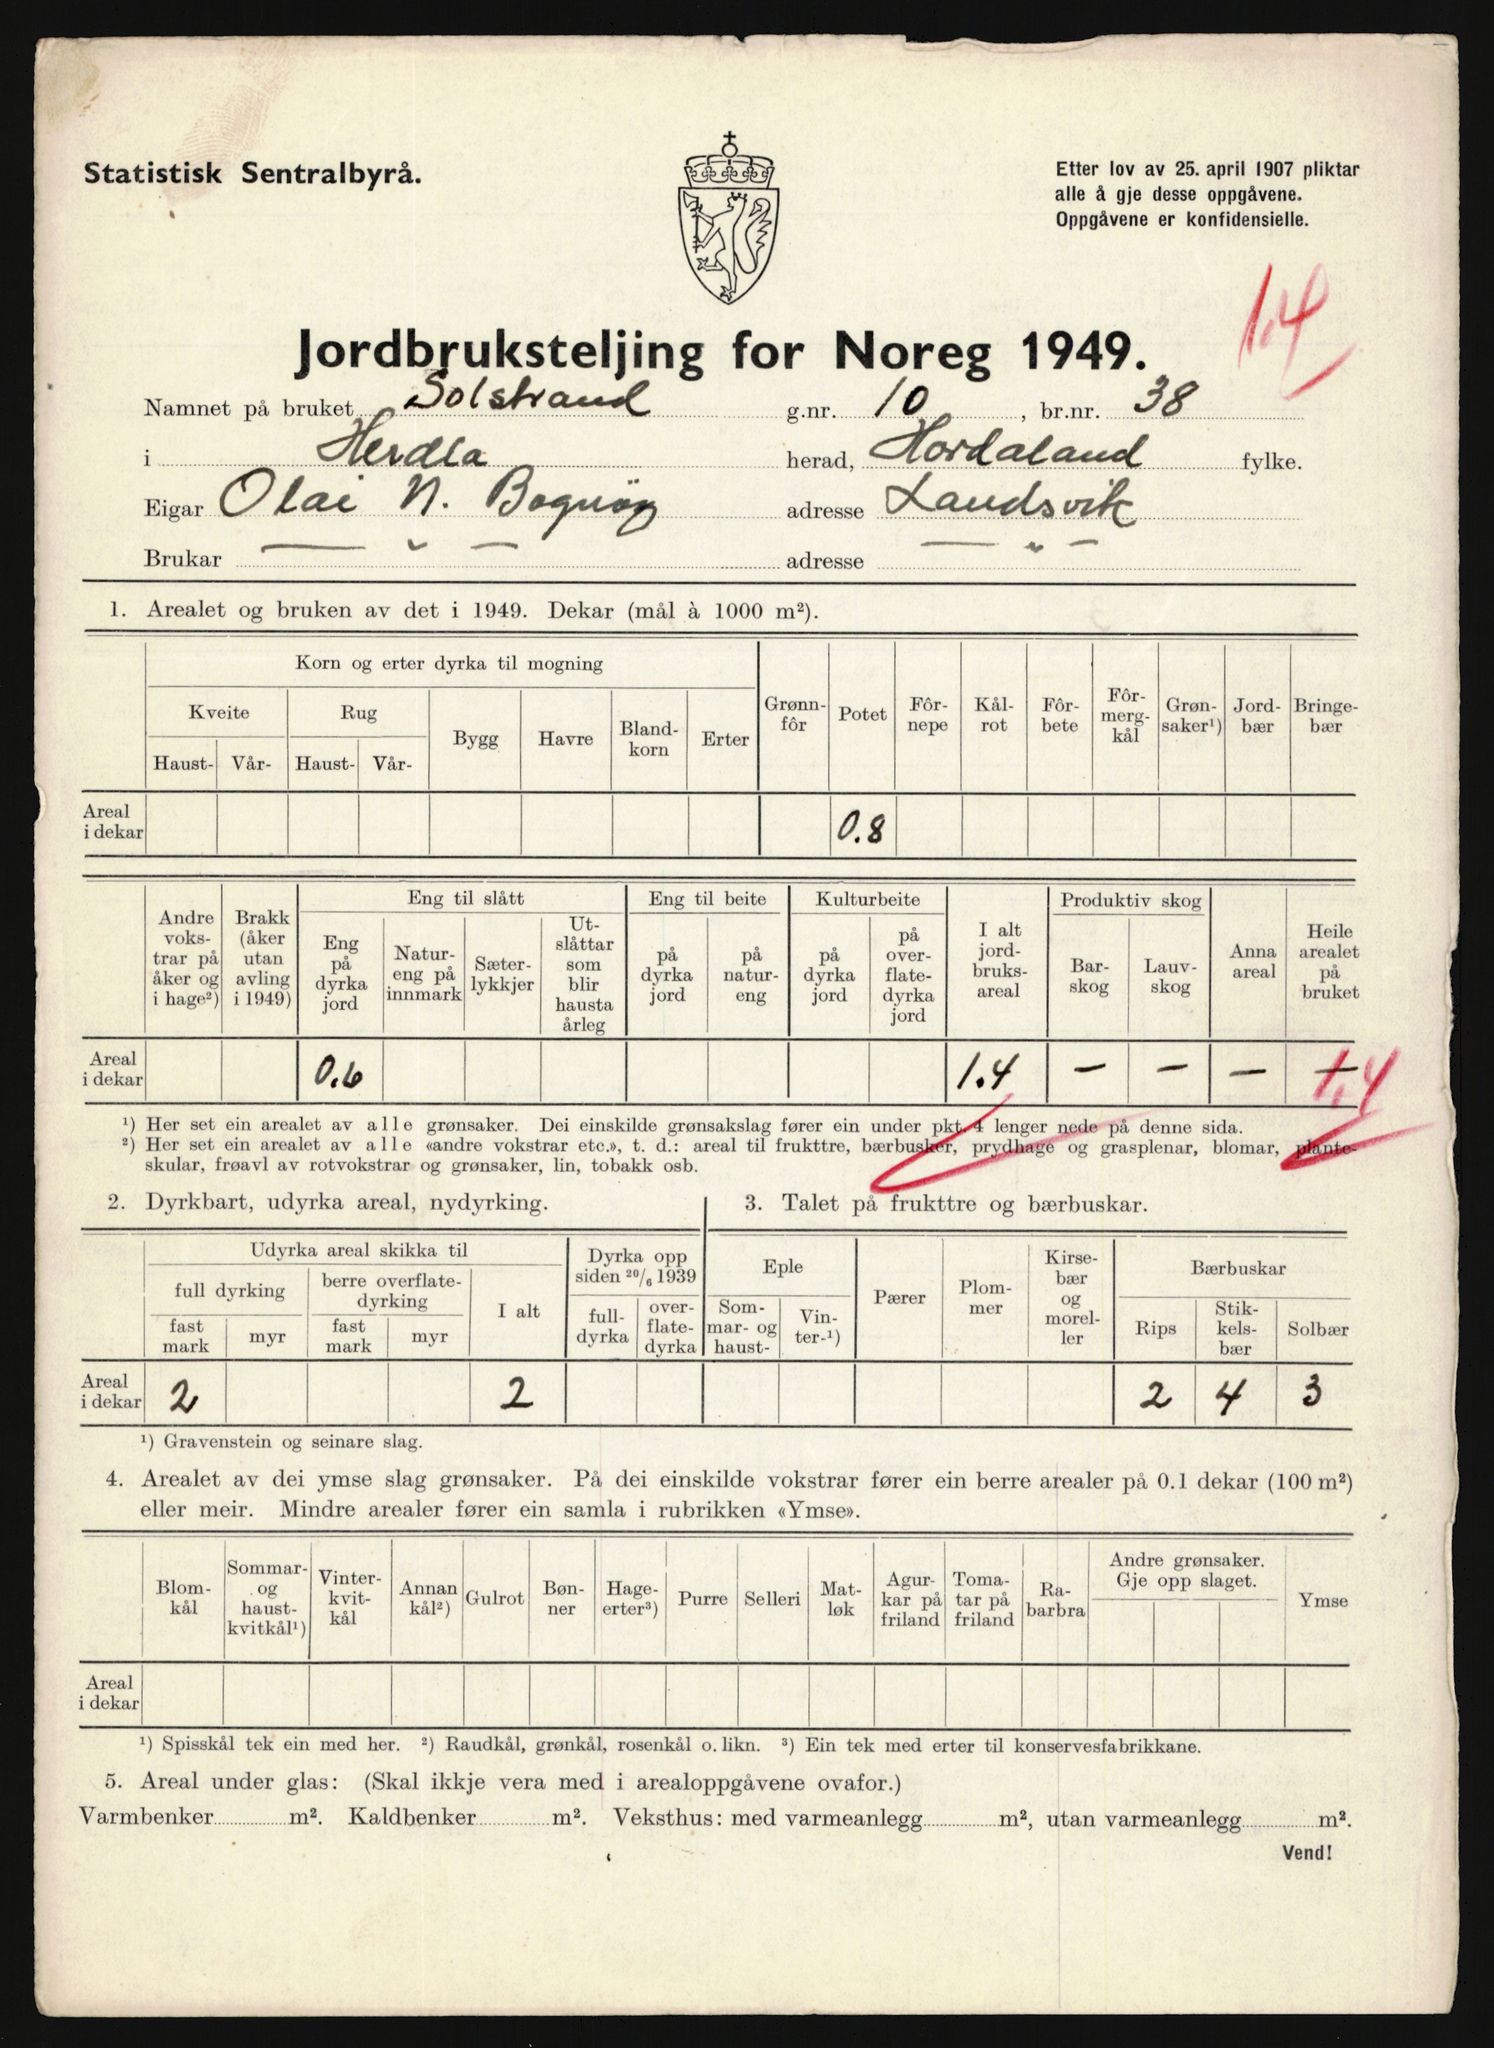 Statistisk Sentralbyrå.
Etter lov av 25. april 1907 pliktar
alle å gje desse oppgåvene.
Oppgåvene er konfidensielle.
1.4
Jordbruksteljing for Noreg 1949.
Namnet på bruket Solstrand g.nr. 10, br.nr. 38
i Herdla herad, Hordaland fylke.
Eigar Olai N. Bognøy adresse Landsvik
Brukar — " — adresse — " —
1. Arealet og bruken av det i 1949. Dekar (mål à 1000 m²).
Korn og erter dyrka til mogning
Kveite Rug Bygg Havre Bland-korn Erter Grønn-fôr Potet Fôr-nepe Kål-rot Fôr-bete Fôr-merg-kål Grøn-saker¹) Jord-bær Bringe-bær
Haust- Vår- Haust- Vår-
Areal i dekar 0.8
Andre voks-trar på åker og i hage²) Brakk (åker utan avling i 1949) Eng til slått Eng til beite Kulturbeite I alt jord-bruks-areal Produktiv skog Anna areal Heile arealet på bruket
Eng på dyrka jord Natur-eng på innmark Sæter-lykkjer Ut-slåttar som blir hausta årleg på dyrka jord på natur-eng på dyrka jord på over-flate-dyrka jord Bar-skog Lauv-skog
Areal i dekar 0.6 1.4 — — — — 1.4
¹) Her set ein arealet av alle grønsaker. Dei einskilde grønsakslag fører ein under pkt. 4 lenger nede på denne sida.
²) Her set ein arealet av alle «andre vokstrar etc.», t. d.: areal til frukttre, bærbusker, prydhage og grasplenar, blomar, plante-
skular, frøavl av rotvokstrar og grønsaker, lin, tobakk osb.
2. Dyrkbart, udyrka areal, nydyrking.
Udyrka areal skikka til Dyrka opp siden 20/6 1939
full dyrking berre overflate-dyrking I alt full-dyrka over-flate-dyrka
fast mark myr fast mark myr
Areal i dekar 2 2
3. Talet på frukttre og bærbuskar.
Eple Pærer Plom-mer Kirse-bær og morel-ler Bærbuskar
Som-mar- og haust- Vin-ter-¹) Rips Stik-kels-bær Solbær
2 4 3
¹) Gravenstein og seinare slag.
4. Arealet av dei ymse slag grønsaker. På dei einskilde vokstrar fører ein berre arealer på 0.1 dekar (100 m²)
eller meir. Mindre arealer fører ein samla i rubrikken «Ymse».
Blom-kål Sommar- og haust-kvitkål¹) Vinter-kvit-kål Annan kål²) Gulrot Bøn-ner Hage-erter³) Purre Selleri Mat-løk Agur-kar på friland Toma-tar på friland Ra-barbra Andre grønsaker. Gje opp slaget. Ymse
Areal i dekar
¹) Spisskål tek ein med her. ²) Raudkål, grønkål, rosenkål o. likn. ³) Ein tek med erter til konservesfabrikkane.
5. Areal under glas: (Skal ikkje vera med i arealoppgåvene ovafor.)
Varmbenker m². Kaldbenker m². Veksthus: med varmeanlegg m², utan varmeanlegg m².
Vend!